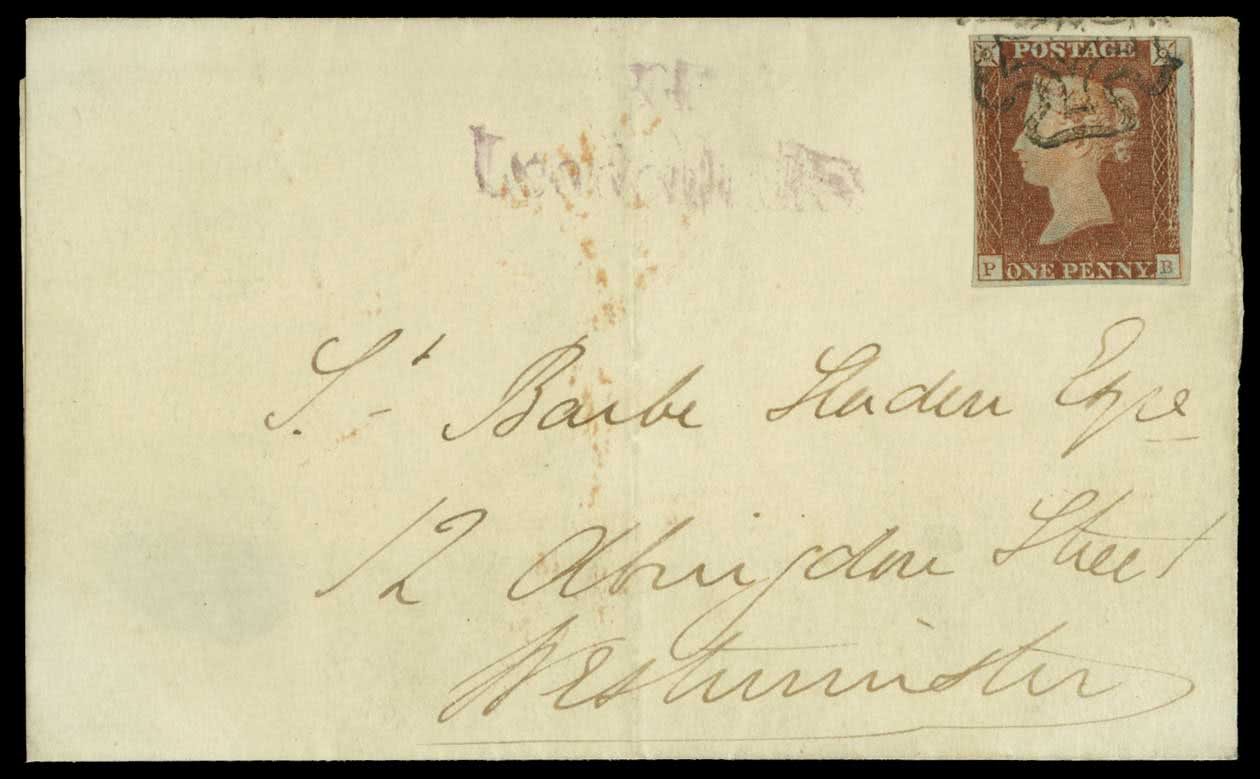 POSTAGE
P ONE PENNY B
St Barbe Sladen Esqre
12 Abingdon Street
Westminster